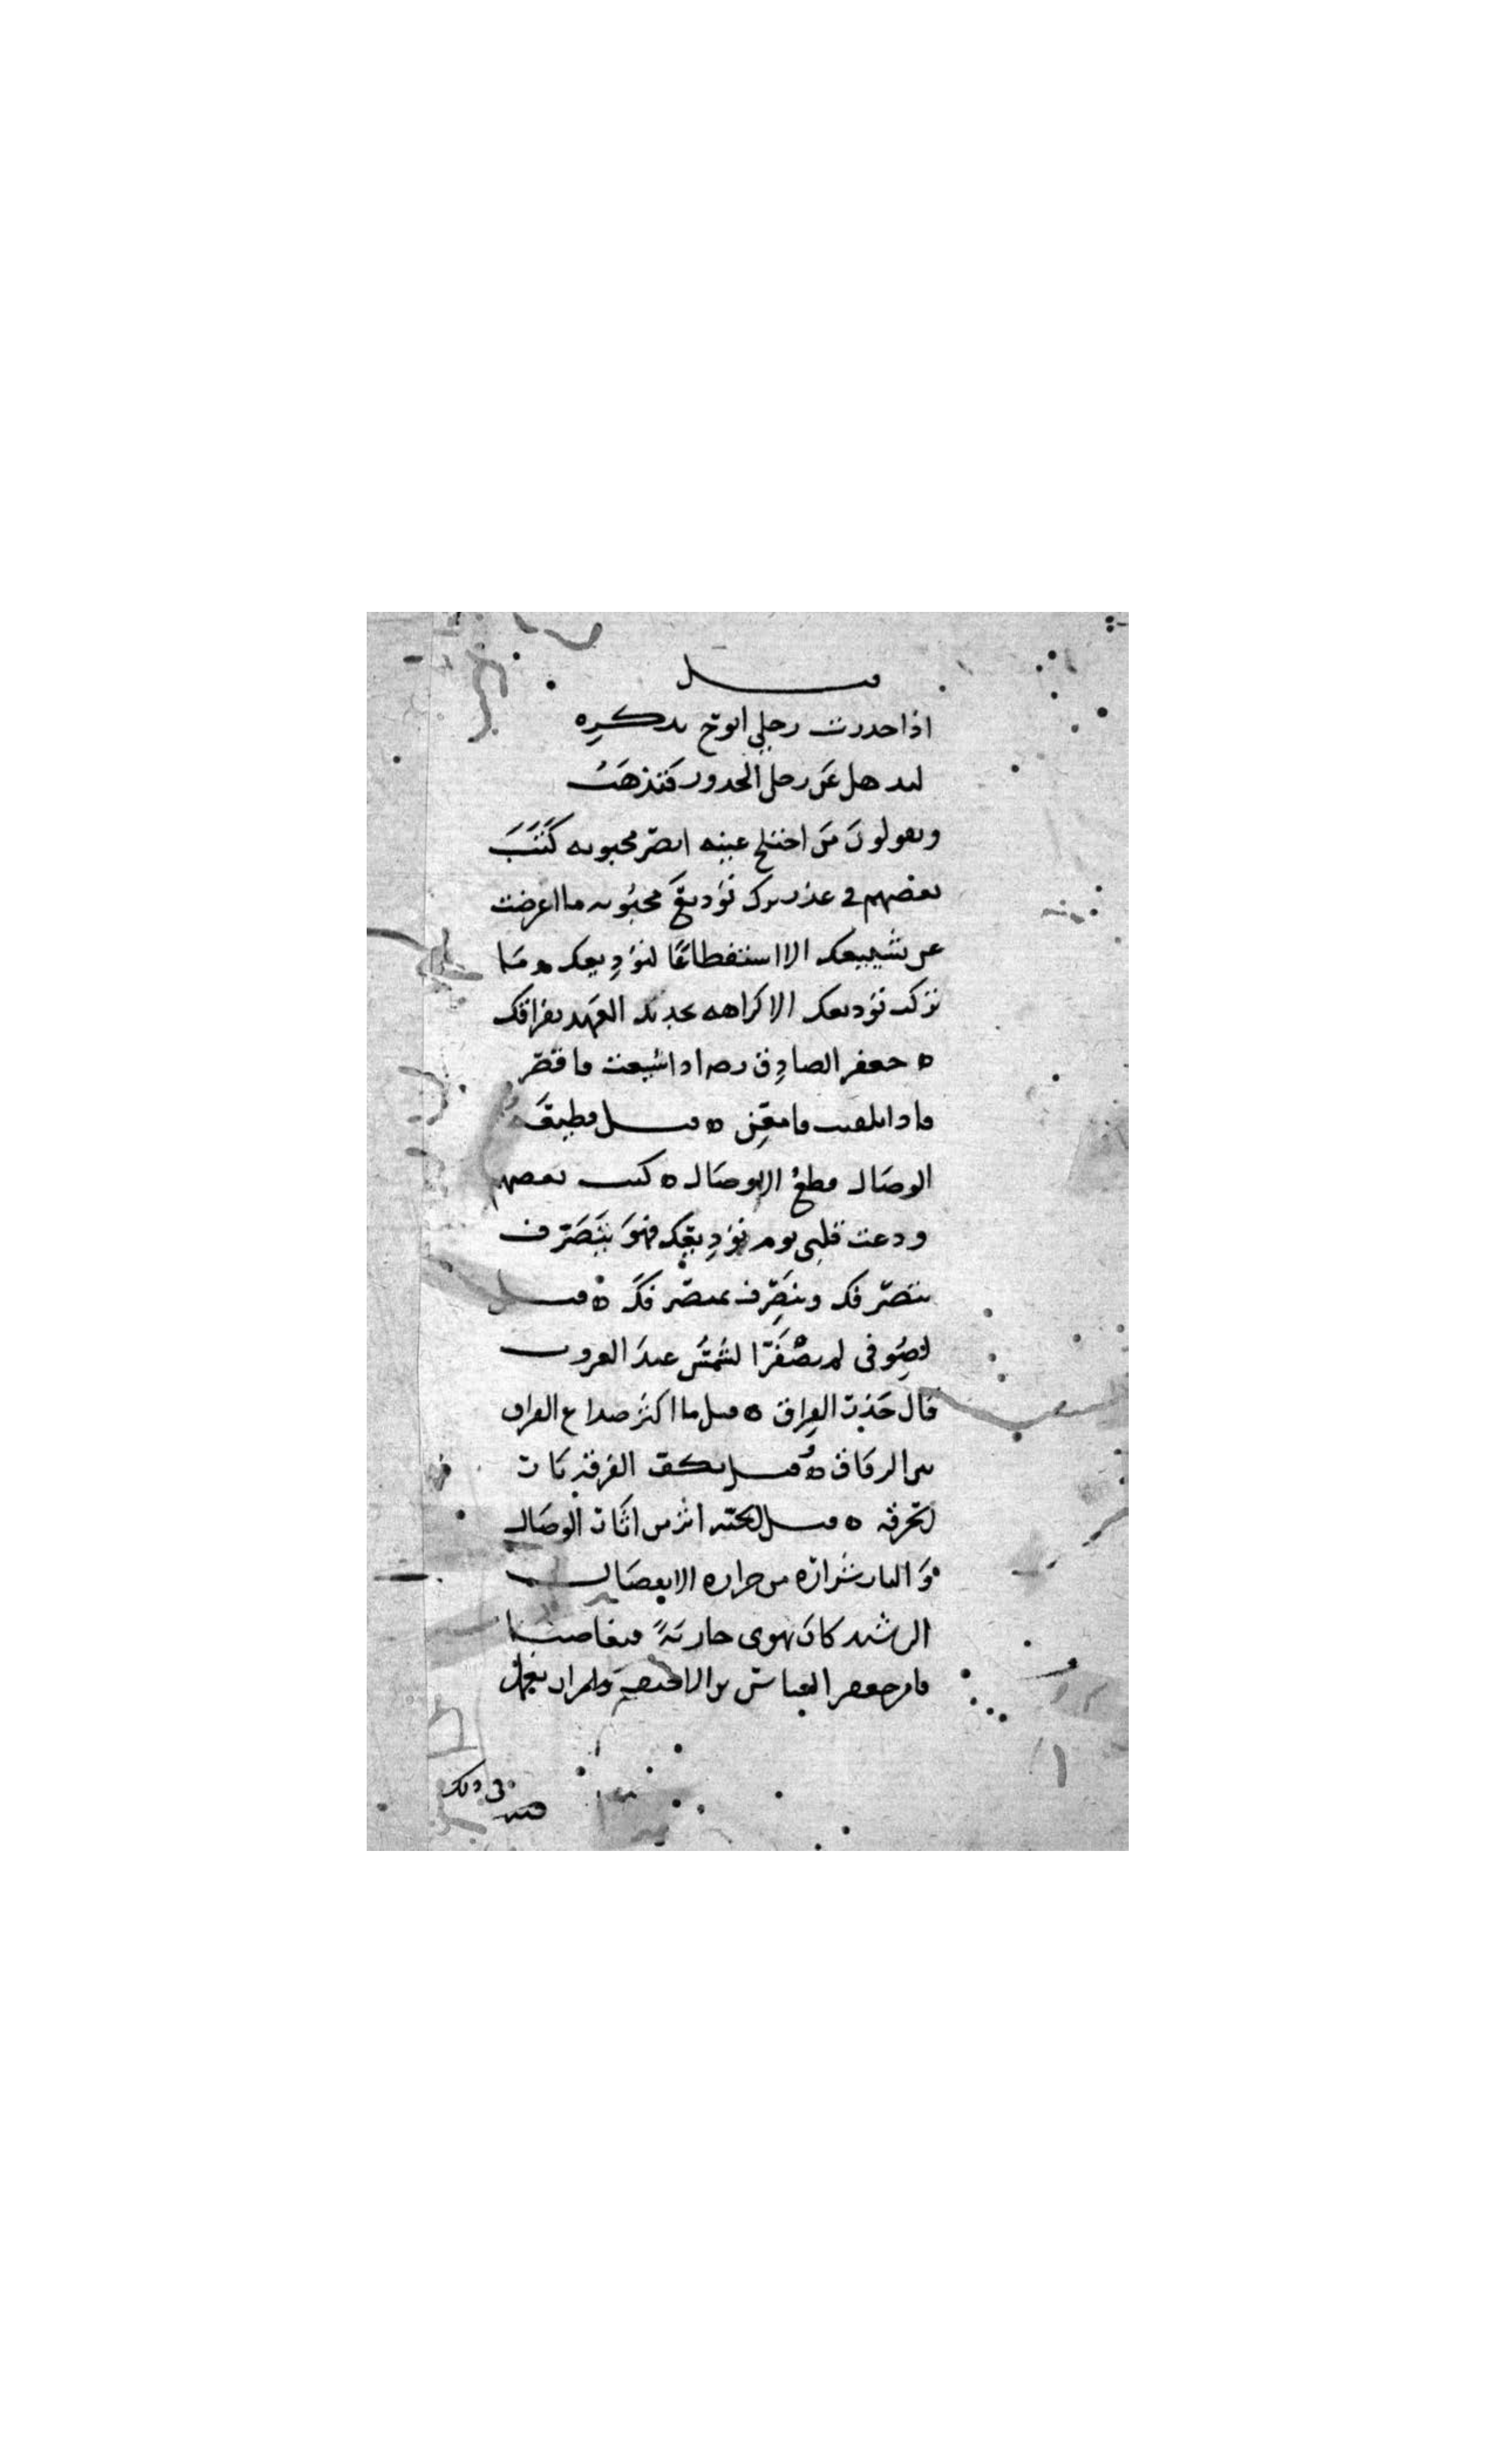 قيل
اذا خدرت رجلي ابوح بذكره
ليذهل عن رجلي الخدور فتذهب
ويقولون من اختلج عينه ابصر محبوبه كتب
بعضهم في عذر ترك توديع محبوبه ما اعرضت
عن تشييعك الا استفظاعا لتوديعك ه وما
تركت توديعك الا كراهه تجديد العهد بفراقك
ه جعفر الصادق رضه اذا شيعت فاقصر
فاذا تلقيت فامعن ه قيل قطيعه
الوصال قطع الاوصال ه كتب بعضهم
ودعت قلبي يوم توديعك فهو يتصرف
بتصرفك وينصرف بمنصرفك ه قيل
لصوفي لم تصفر الشمس عند الغروب
قال حذرت الفراق ه قيل ما اكثر صداع الفراق
بين الرفاق ه قيل بكف الفرقه نار
الحرقه ه قيل الجنه اثر من اثار الوصال
والنار شراره من حراره الانفصال
الرشيد كان يهوى جاريه فتغاضبا
فامر جعفر العباس بن الاحنف وقد اراد يعمل
في ذلك